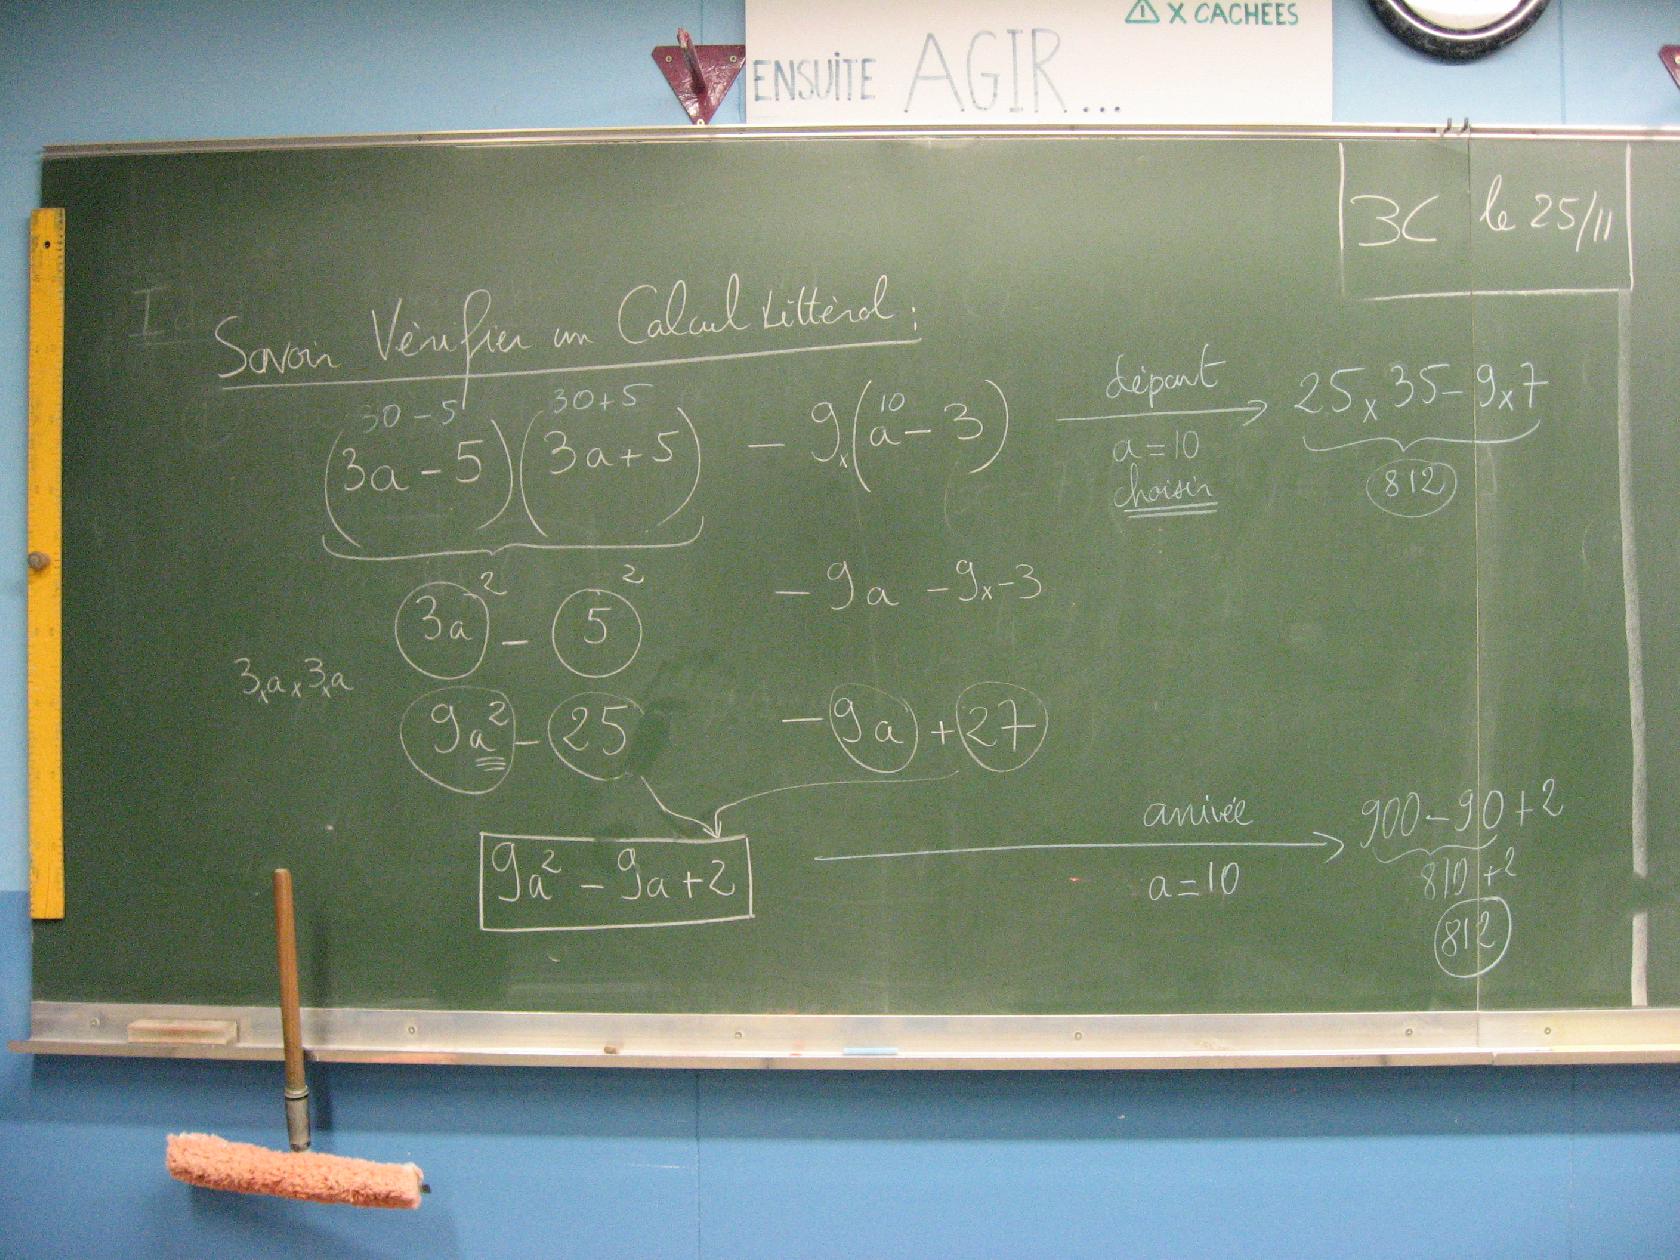 ⚠ X CACHÉES
ENSUITE AGIR...
3C le 25/11
Savoir Vérifier un Calcul Littéral :
30 - 5 30 + 5 10
(3a - 5)(3a + 5) - 9x(a - 3)
départ
a = 10
choisir
25 x 35 - 9 x 7
812
3a² - 5² - 9a - 9x-3
3xax3xa
9a² - 25 - 9a + 27
9a² - 9a + 2
arrivée
a = 10
900 - 90 + 2
810 + 2
812